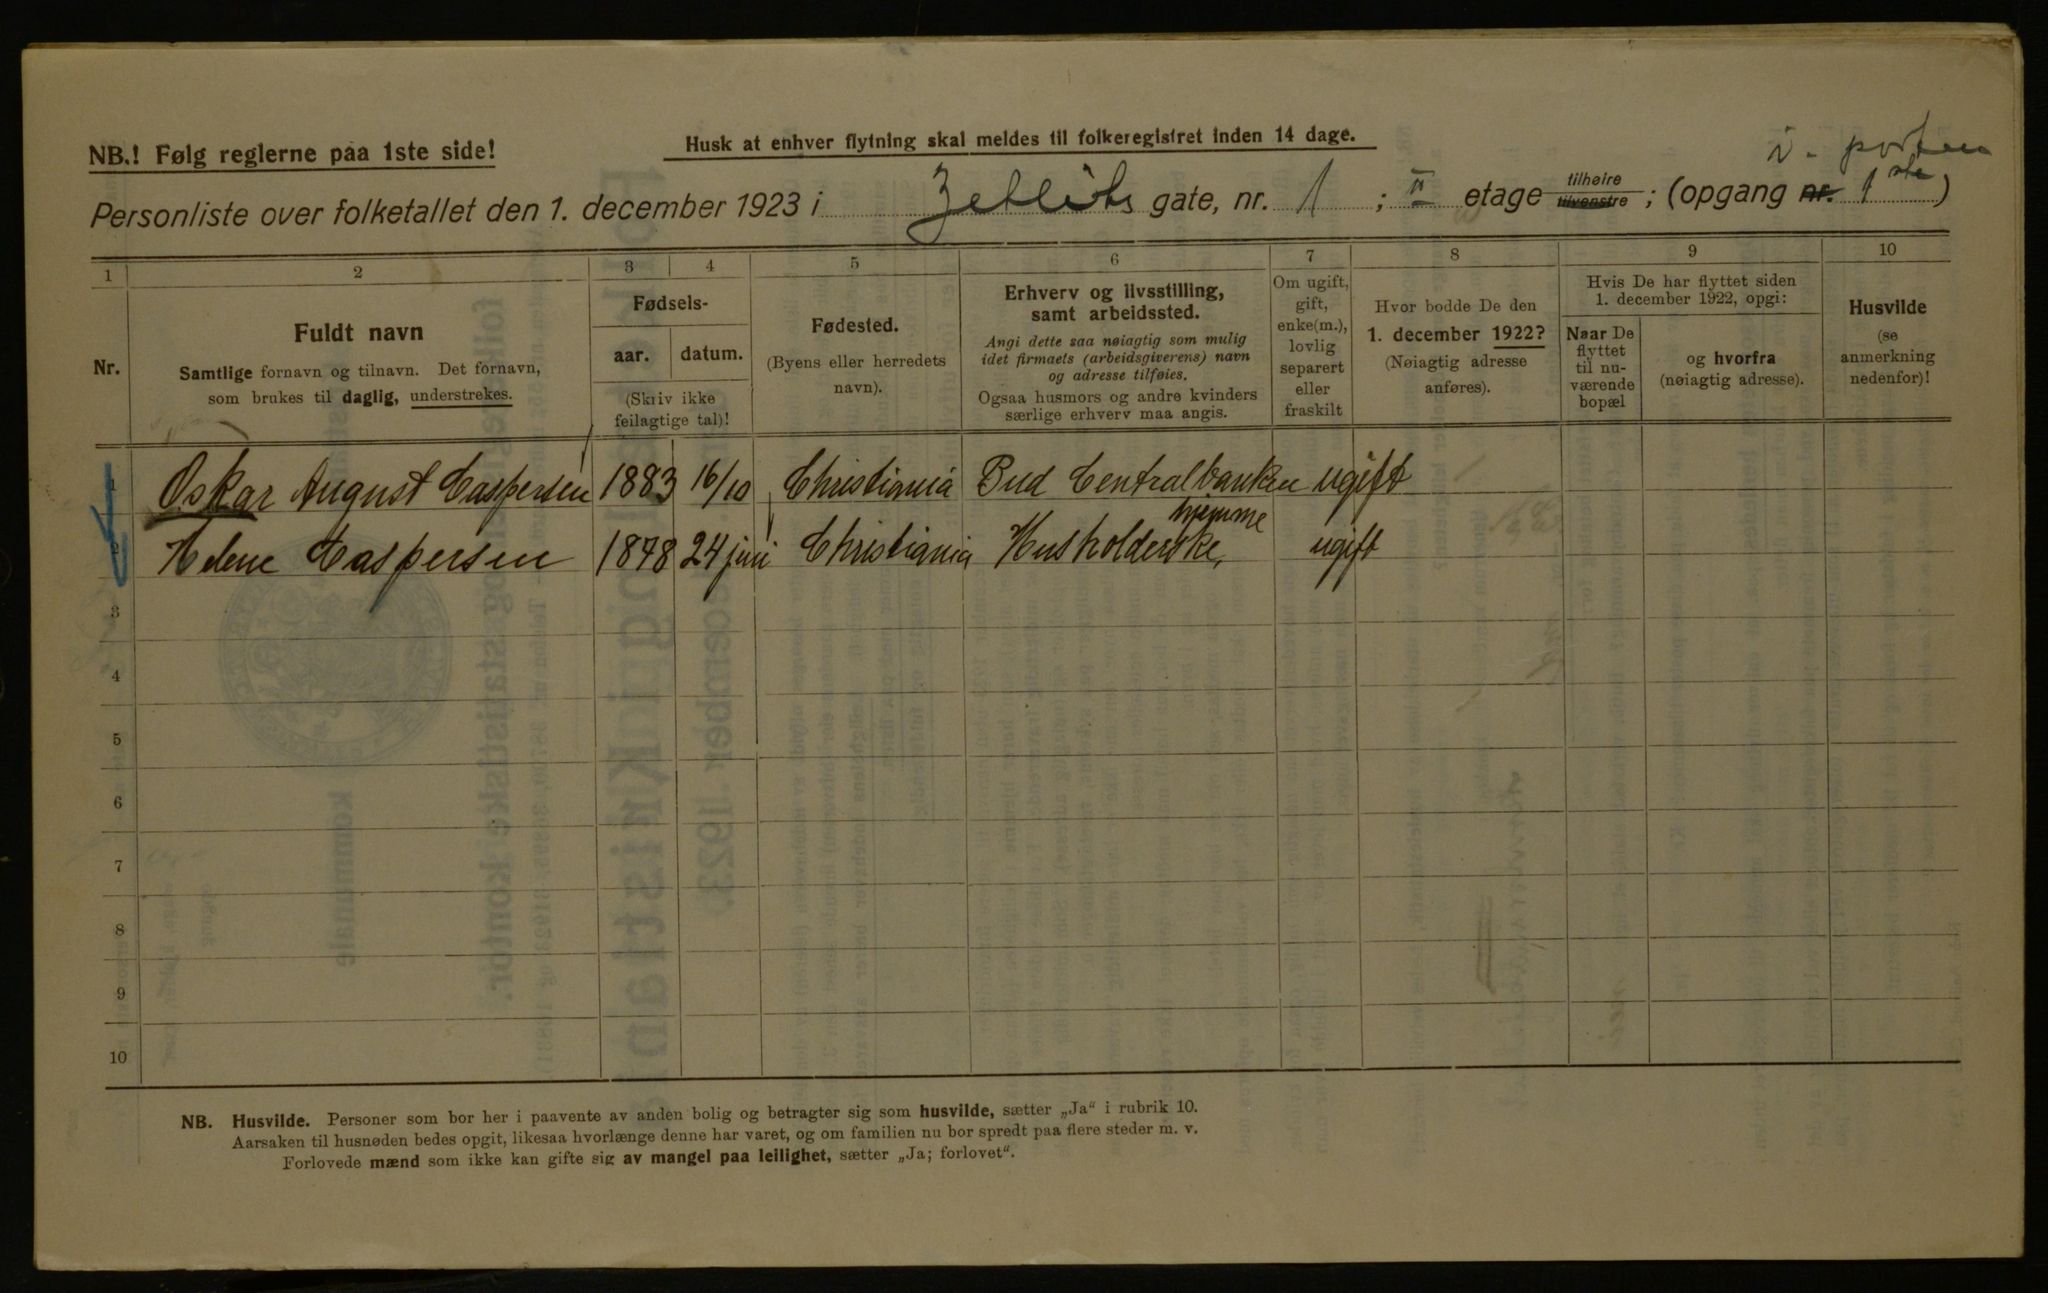 NB.! Følg reglerne paa 1ste side!
Husk at enhver flytning skal meldes til folkeregistret inden 14 dage.
i. porten
Personliste over folketallet den 1. december 1923 i Zetlitz gate, nr. 1 ; II etage tilhøire tilvenstre ; (opgang nr. 1ste)
1 2 3 4 5 6 7 8 9 10
Nr.
Fuldt navn
Samtlige fornavn og tilnavn. Det fornavn,
som brukes til daglig, understrekes.
Fødsels-
aar. datum.
(Skriv ikke
feilagtige tal)!
Fødested.
(Byens eller herredets
navn).
Erhverv og livsstilling,
samt arbeidssted.
Angi dette saa nøiagtig som mulig
idet firmaets (arbeidsgiverens) navn
og adresse tilføies.
Ogsaa husmors og andre kvinders
særlige erhverv maa angis.
Om ugift,
gift,
enke(m.),
lovlig
separert
eller
fraskilt
Hvor bodde De den
1. december 1922?
(Nøiagtig adresse
anføres).
Hvis De har flyttet siden
1. december 1922, opgi:
Naar De
flyttet
til nu-
værende
bopæl
og hvorfra
(nøiagtig adresse).
Husvilde
(se
anmerkning
nedenfor)!
1 Oskar August Caspersen 1883 16/10 Christiania Bud Centralbanken ugift
hjemme
2 Helene Caspersen 1878 24 juni Christiania Husholderske, ugift
3
4
5
6
7
8
9
10
NB. Husvilde. Personer som bor her i paavente av anden bolig og betragter sig som husvilde, sætter „Ja" i rubrik 10.
Aarsaken til husnøden bedes opgit, likesaa hvorlænge denne har varet, og om familien nu bor spredt paa flere steder m. v.
Forlovede mænd som ikke kan gifte sig av mangel paa leilighet, sætter „Ja; forlovet".